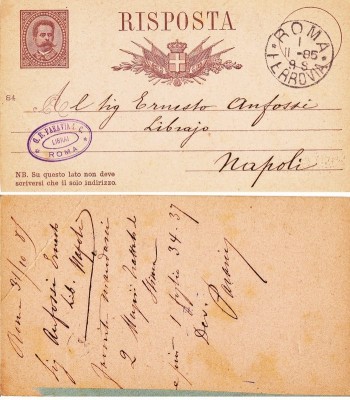 RISPOSTA
ROMA
11-85
9 S
FERROVIA
84
Al Sig Ernesto Anfossi
Librajo
Napoli
G.B. PARAVIA E C.
LIBRAI
ROMA
NB. Su questo lato non deve
scriversi che il solo indirizzo.
Roma 31/10 85
Sig Anfossi Ernesto
Lib. Napoli
2
Roma
1 foglio 34. 37
Dev.
Paravia